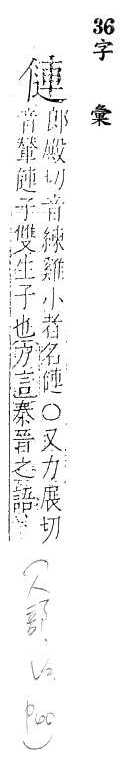 36字彙
僆 郎殿切音練雞小者名僆〇又力展切
音輦僆子雙生子也方言秦晉之語
(人部.